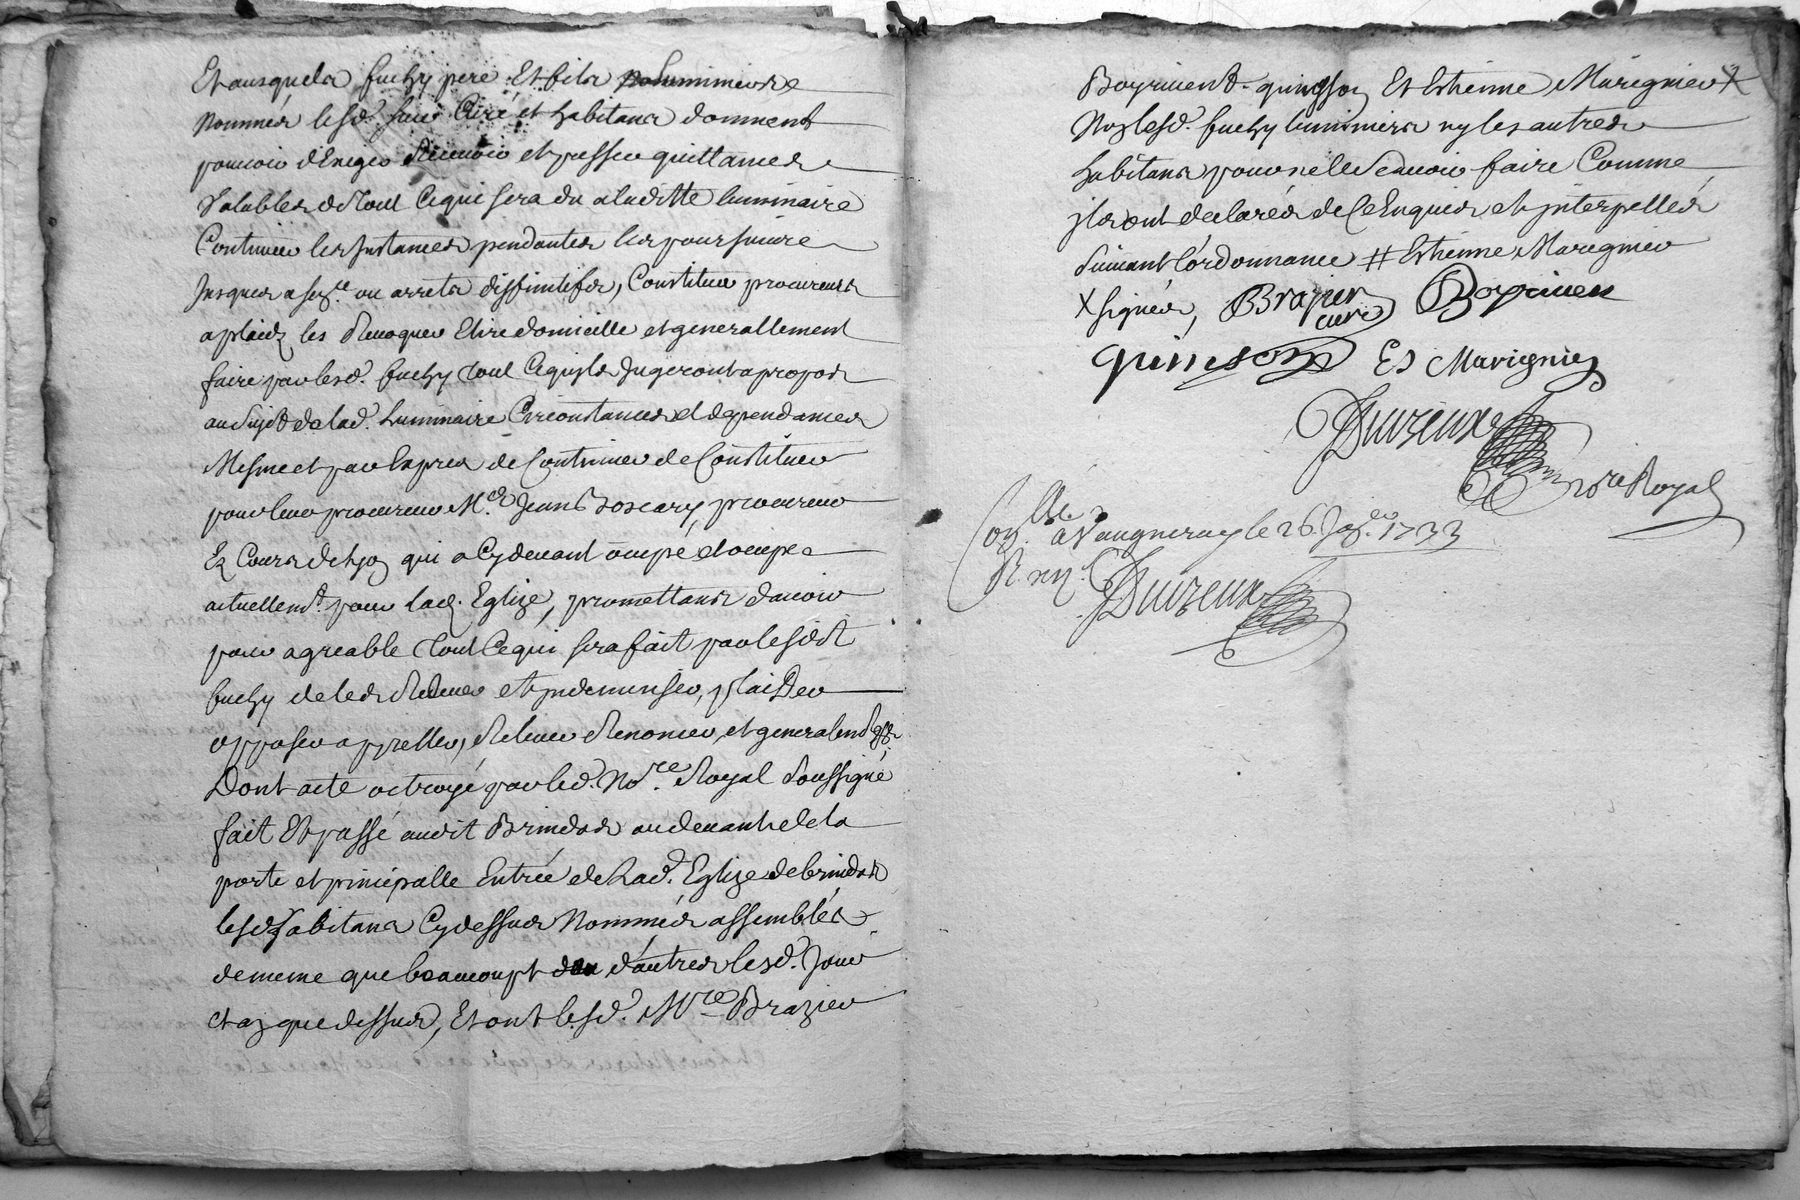 Et ausquels fuchy pere Et fils luminiers
Nommés lesd. sieur Curé et habitans donnent
pouvoir d'Exiger Recevoir et passer quittances
Valables de tout Cequi sera du aladitte luminaire
Continuer les Instances pendantes les poursuivre
Jusques a sen.ce ou arrets diffinitifs, Constituer procureurs
a plaidz les Revoquer Elire domicille et generallement
faire par lesd. fuchy tout Cequils Jugeront apropos
au Sujet de lad. Luminaire Circonstances et dependances
Mesme et par Exprès de Continuer de Constituer
pour leur procureur M.e Jean Boscary procureur
Ez Cours de Lyon qui a Cydevant occupé et occupe
actuellem.t pour lad. Eglize, promettans davoir
pour agreable tout Cequi sera fait par lesdit
fuchy de les Relever et indemniser, plaider
opposer appeller, Relever Renoncer, et generalem.t
Dont acte octroyé par led. No.re Royal Soussigné
fait Et passé audit Brindas au devant de la
porte et principalle Entrée de Lad. Eglize de brindas
lesd. habitans Cydessus Nommés assemblés
de meme que beaucoupt d'autres lesd. Jour
et an que dessus, Et ont lesd. M.re Brazier
Boyrivent quinson Et Estienne Marignier X
Non lesd. fuchy luminiers ny les autres
habitans pour ne le Scavoir faire Comme
ils ont declarés de Ce Enquis et interpellés
Suivant l'ordonnance # Estienne Marignier
X signés, Brazier curé Boyriven
quinson Es Marignier
Duvieux
No.re Royal
Con.llé a Vaugneray le 26 1733
R.
Duvieux